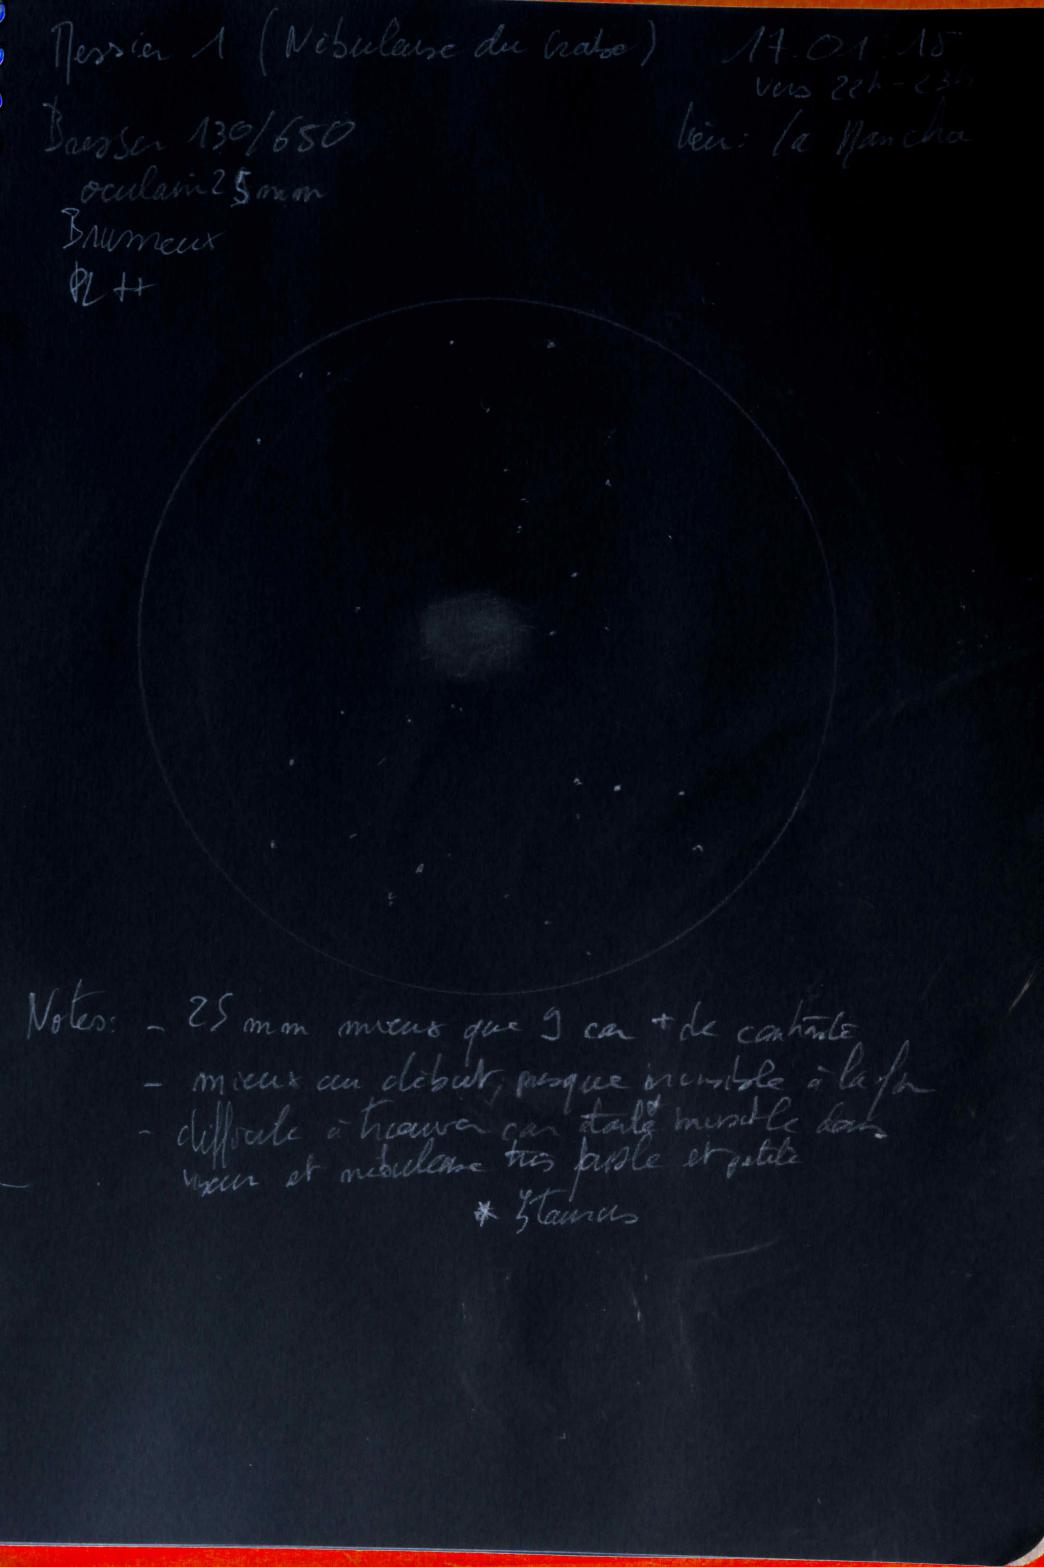 Messier 1 (Nébuleuse du Crabe)
17.01.15
vers 22h-23h
Bresser 130/650
lieu: la Mancha
oculaire 25mm
Brumeux
PL ++
Notes: - 25 mm mieux que 9 car + de contraste
- mieux au début, presque invisible à la fin
- difficile à trouver car étoile* invisible dans
viseur et nébuleuse très faible et petite
* ζ taurus